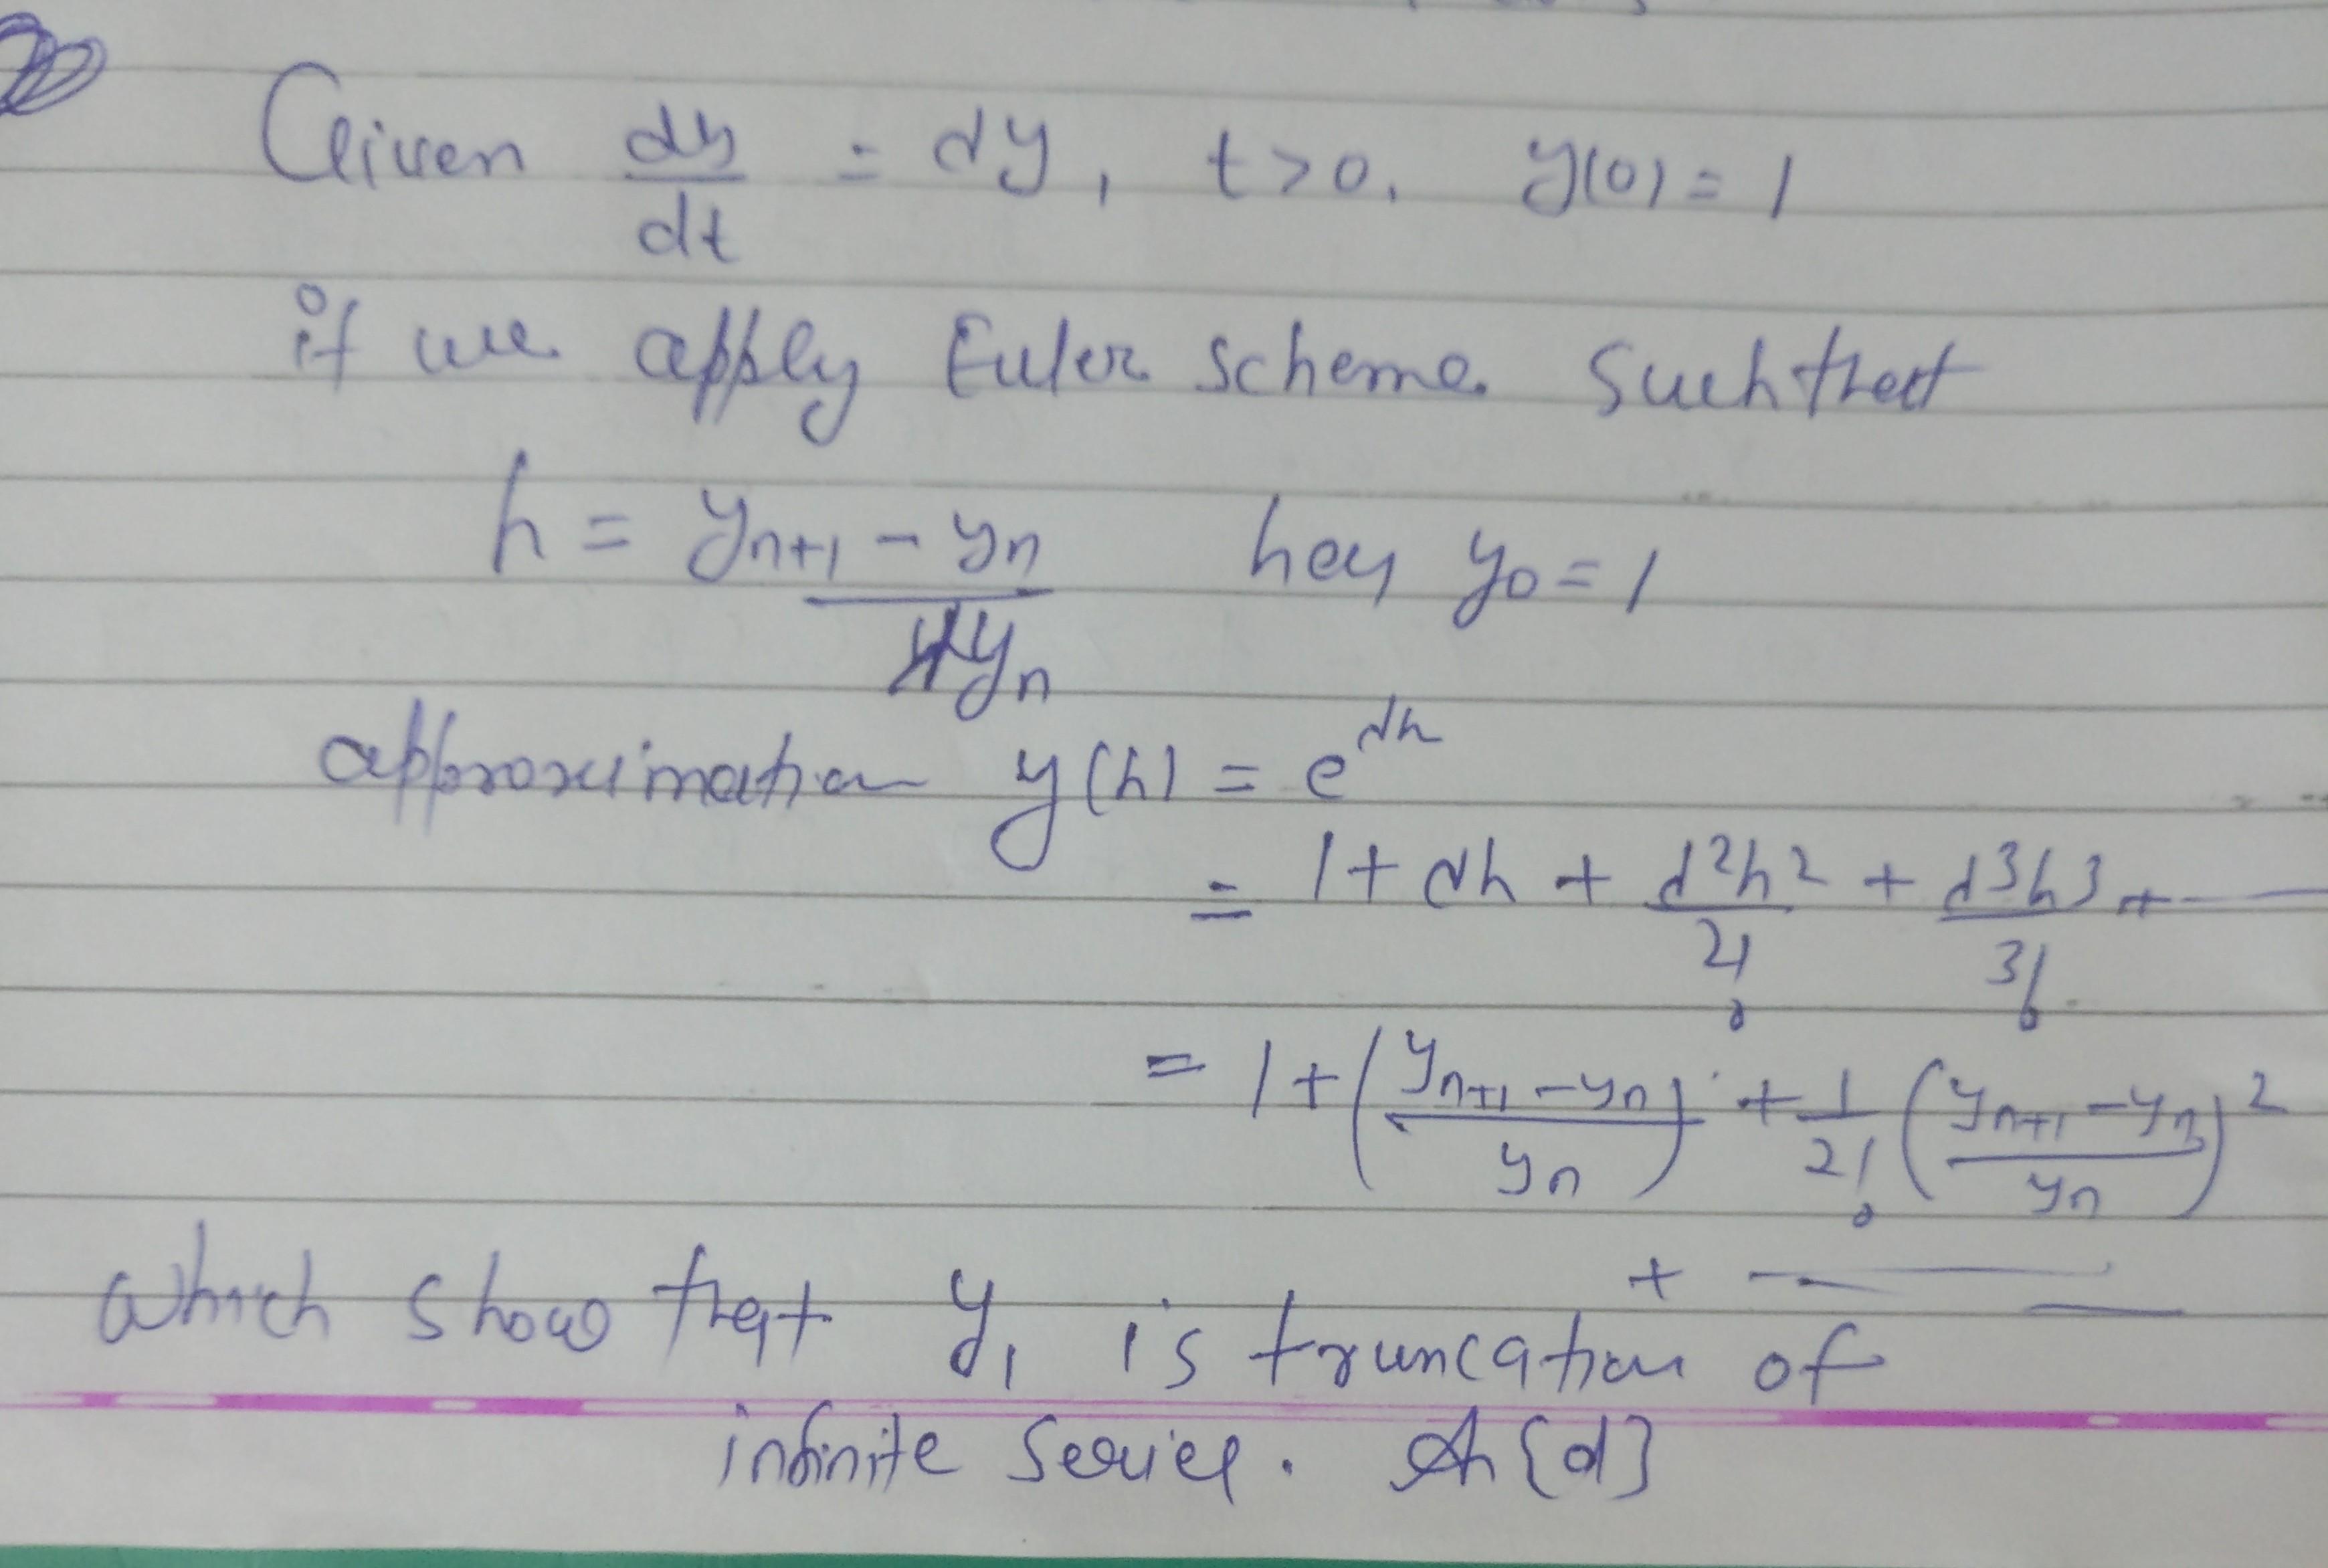 Given dy/dt = dy, t>0, y(0) = 1
if we apply Euler scheme such that
h = yn+1 - yn / dyn hey y0 = 1
approximation y(h) = e^dh
= 1 + dh + d²h²/2! + d³h³/3! + —
= 1 + (yn+1 - yn / yn) + 1/2! (yn+1 - yn / yn)²
+ — —
which show that y1 is truncation of
infinite series. {d}